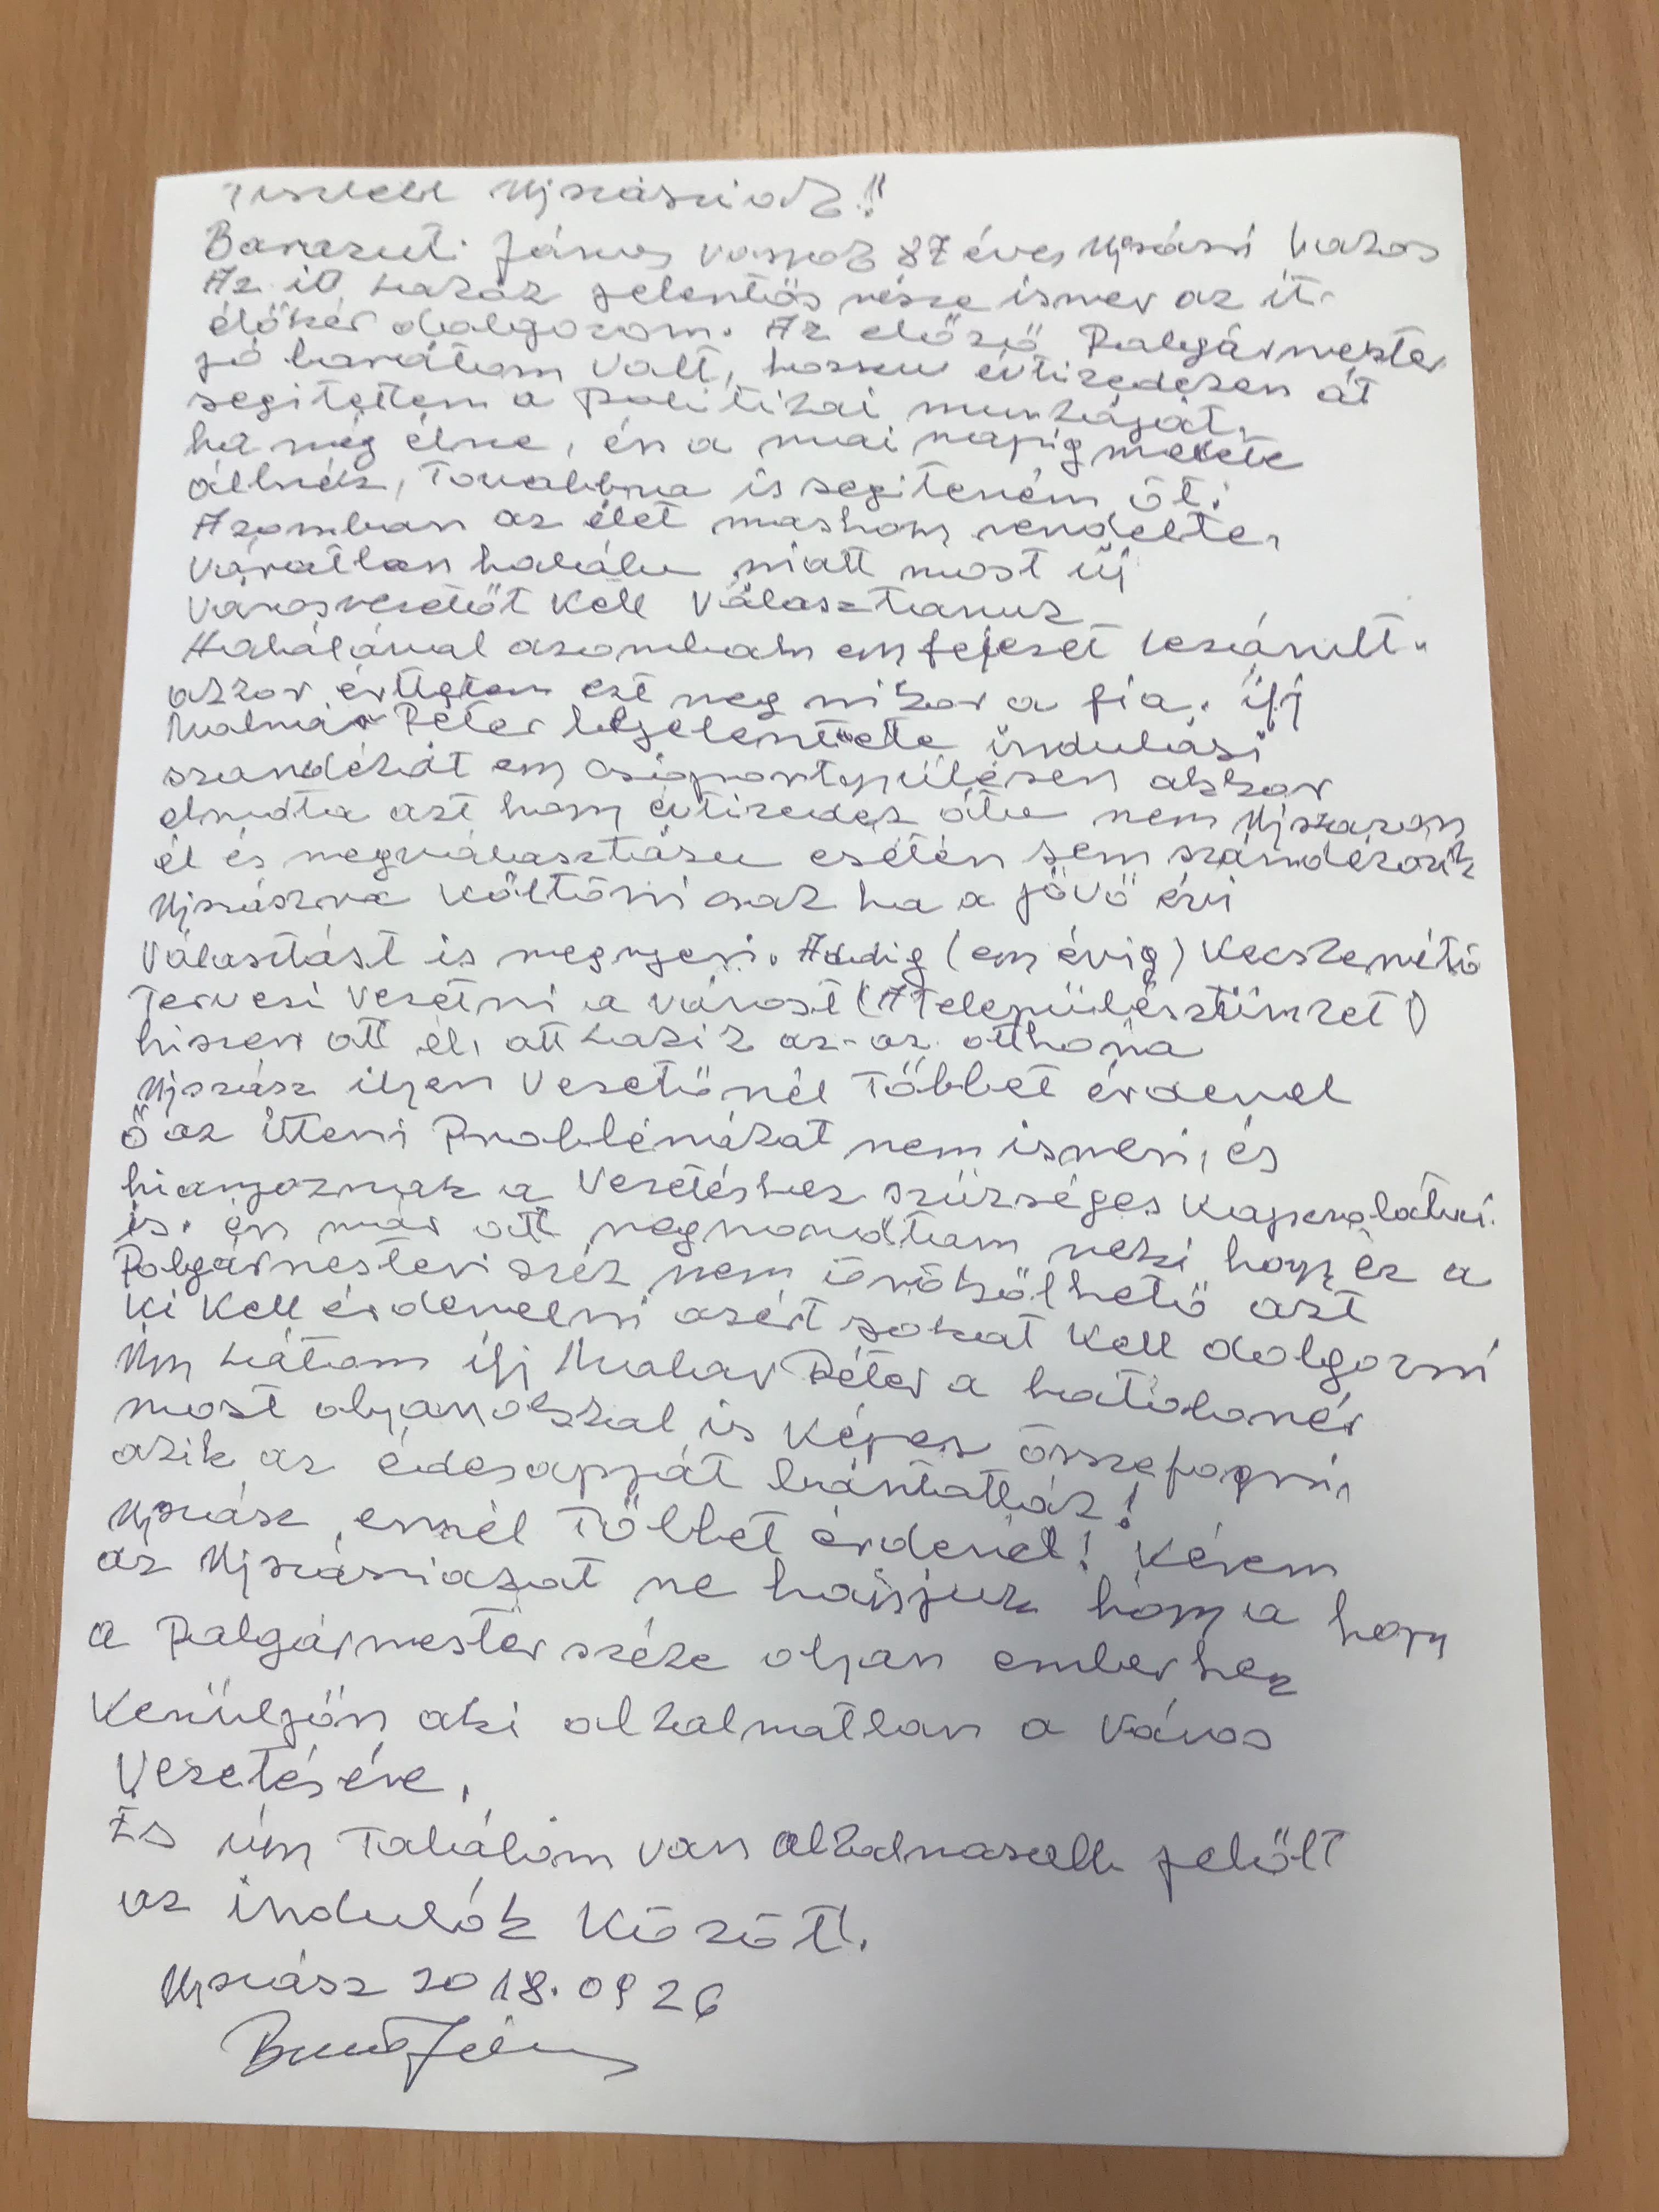 Tisztelt Ujszásziak!!
János vagyok 87 éves Ujszászi lakos
Az itt lakók jelentős része ismer az itt
élőkér dolgozom. Az előző Polgármester
jó barátom volt, hosszu évtizedeken át
segitettem a politikai munkáját,
ha még élne, én a mai napig mellette
állnék, Továbbra is segiteném őt.
Azomban az élet máshogy rendelte,
váratlan halála miatt most új
városvezetőt kell választanuk
Halálával azomban egy fejezet lezárult.
akkor értettem ezt meg mikor a fia. ifj
Molnár Péter bejelentette indulási
szándékát egy csoportgyülésen akkor
elmondta azt hogy évtizedek óta nem Ujszászon
él és megválasztása esetén sem szándékozik
Ujszászra költözni csak ha a jövő évi
Választást is megnyeri. Addig (egy évig) Kecskemétről
Tervezi vezetni a várost (A Településünket)
hiszen ott él, ott lakik az-az otthona
Ujszász ilyen Vezetőnél Többet érdemel
ő az itteni Problémákat nem ismeri, és
hiányoznak a Vezetéshez szükséges kapcsolatai
is. én már ott megmondtam neki hogy ez a
Polgármesteri szék nem örökölhető azt
ki kell érdemelni azért sokat kell dolgozni
Ugy látom ifj Molnar Péter a hatalomér
most olyanokkal is képes összefogni,
azik az édesapját bántották!
Ujszász ennél Többet érdemel! Kérem
az Ujszásziakat ne hagyjuk hogy a hogy
a Polgármester széke olyan emberhez
Kerüljön aki alkalmatlan a Város
Vezetésére.
És úgy Találom van alkalmasabb jelölt
az indulók között.
Ujszász 2018. 09 26